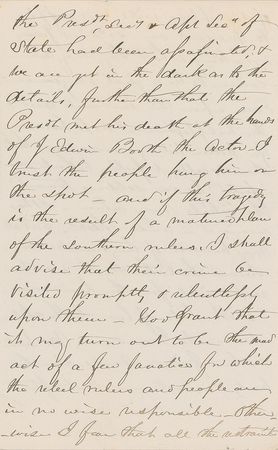 the Presdt, Secy & Asst Secy of
State had been assassinated, &
we are yet in the dark as to the
details, further than that the
Presdt met his death at the hands
of J Edwin Booth the actor. I
trust the people hung him on
the spot - and if this tragedy
is the result of a mature plan
of the Southern rulers, I shall
advise that their crime be
visited promptly & relentlessly
upon them - God grant that
it may turn out to be the mad
act of a few fanatics for which
the rebel rulers and people are
in no wise responsible - other-
-wise I fear that all the restraints